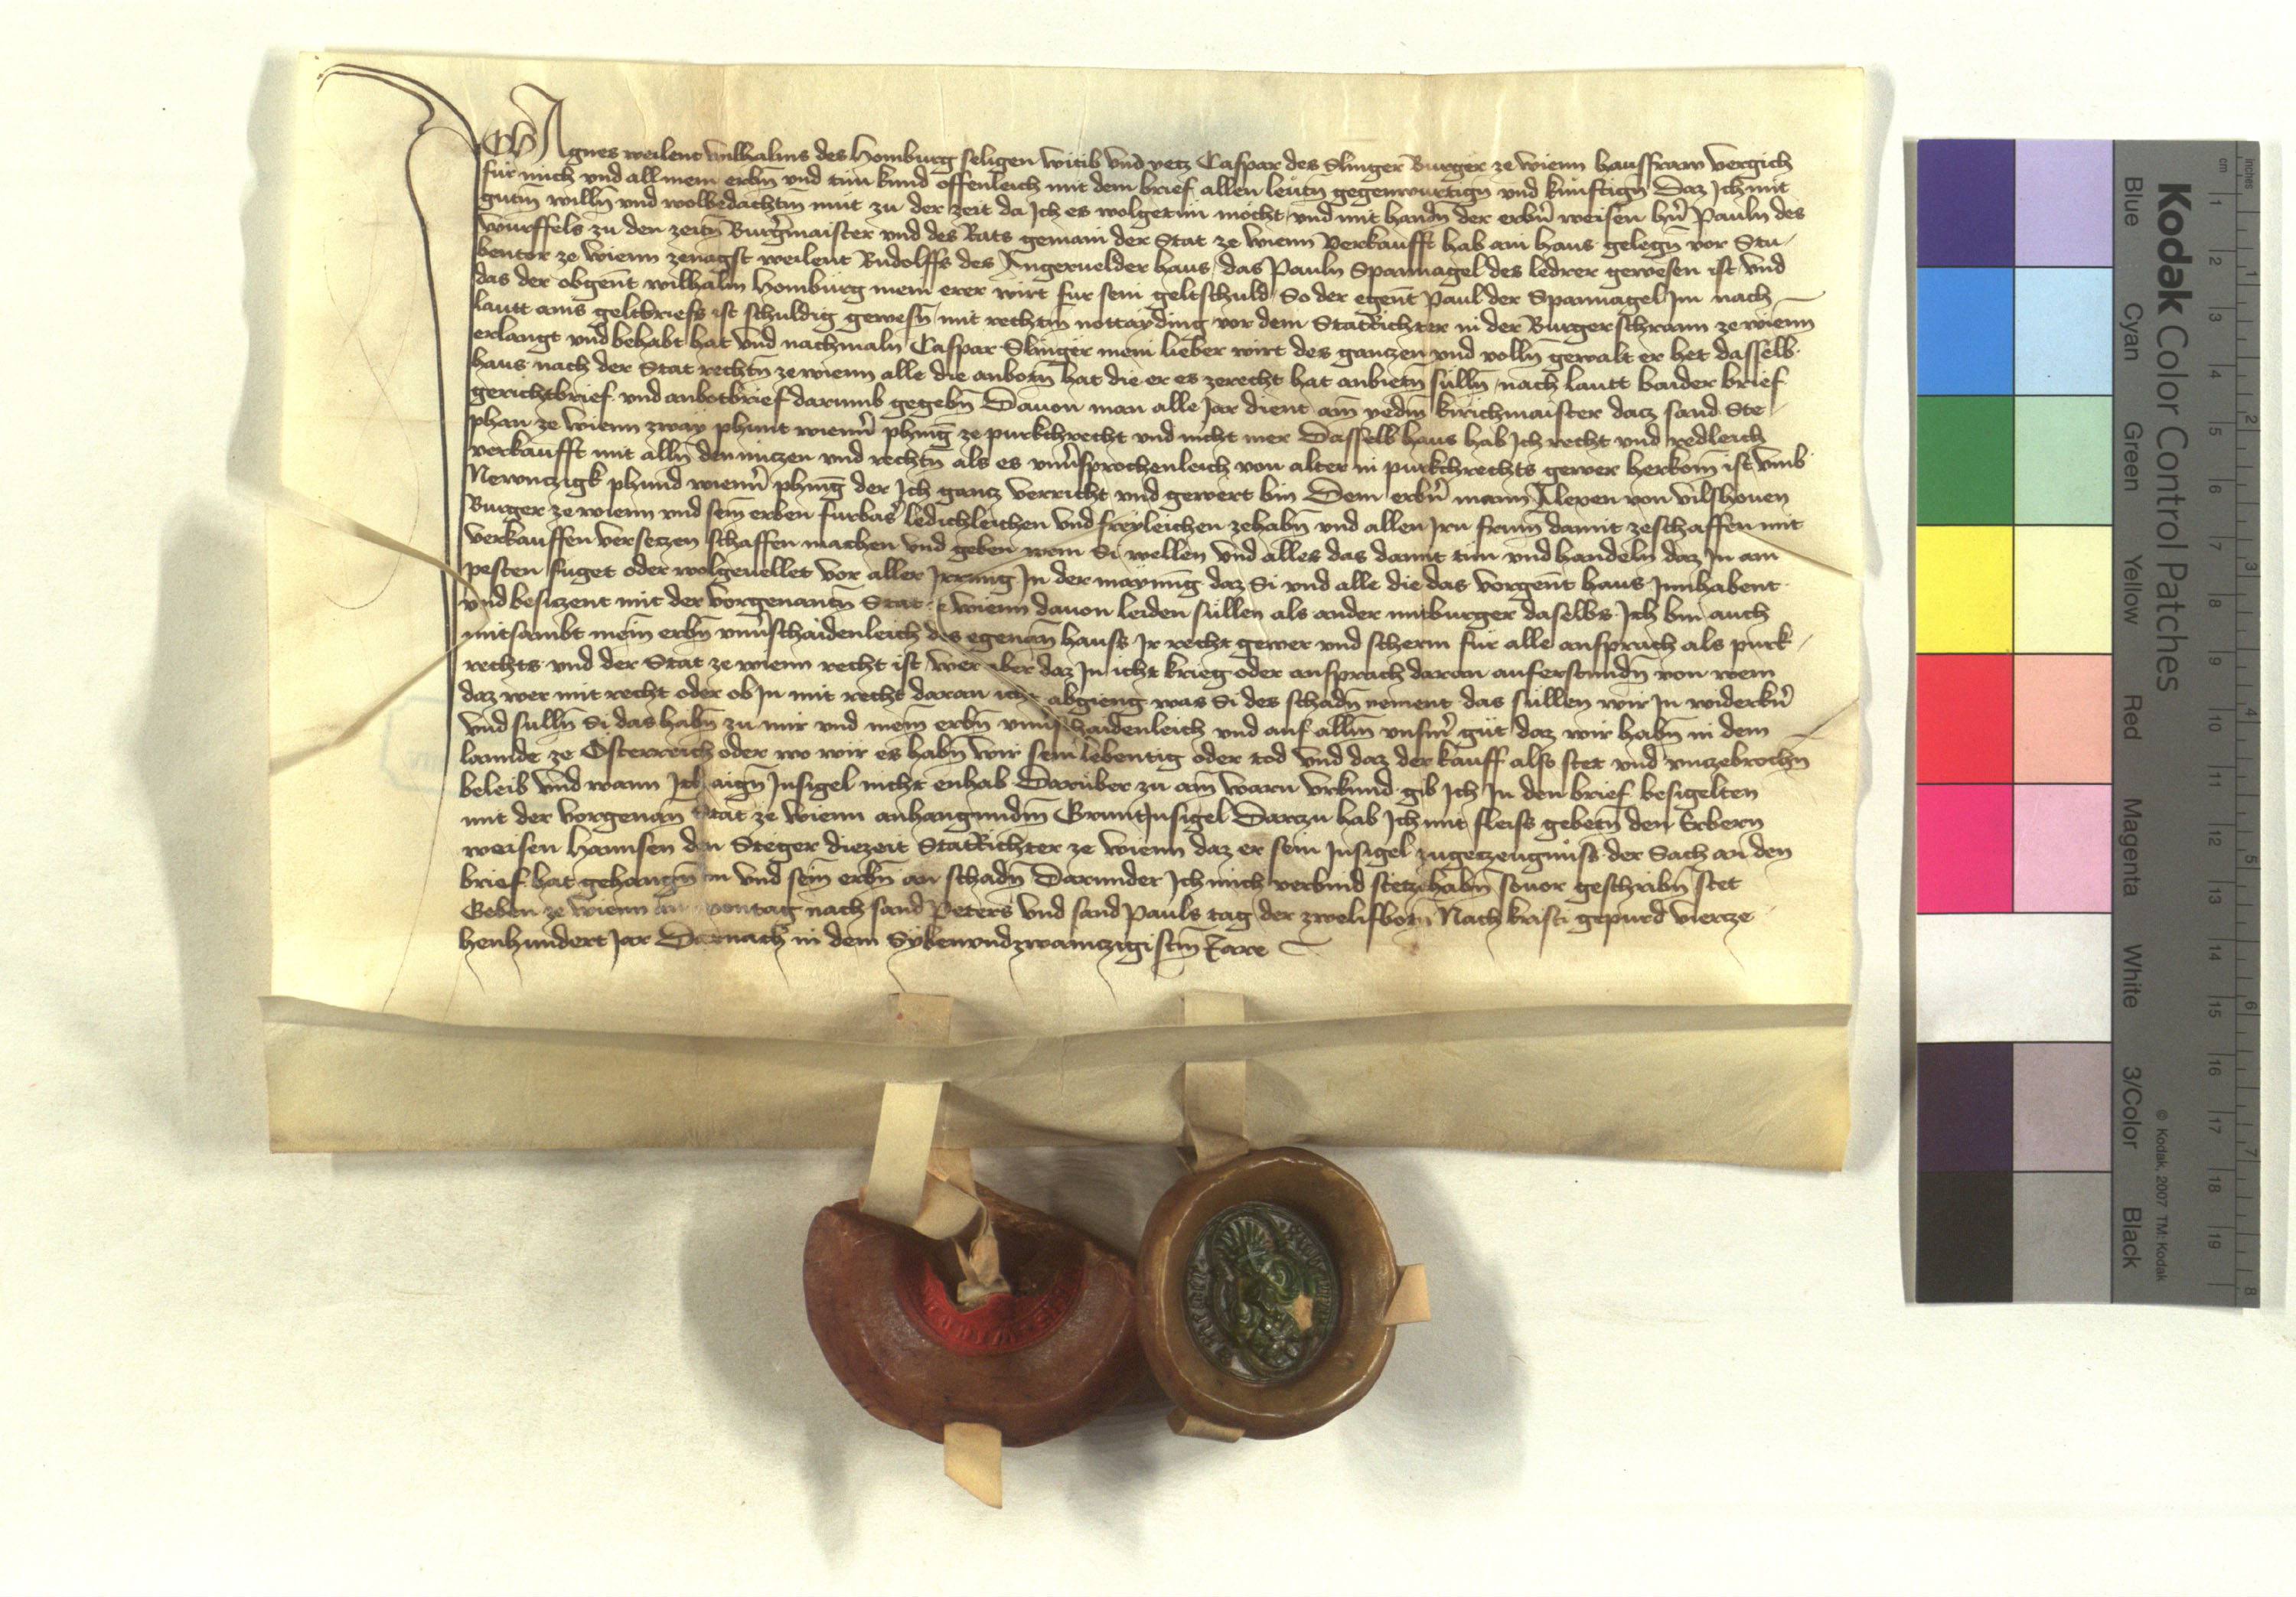 Ich Agnes weilent Wilhalms des Homburg seligen witib vnd yetz Caspar des Slinger Burger ze wienn hausfraw Vergich
für mich vnd all mein erbn̄ vnd tůn kund offenleich mit dem brief allen leutn̄ gegenwurtign̄ vnd kunftign̄ Daz Ich mit
gutm̄ willn̄ vnd wolbedachtm̄ mut zu der zeit da Ich es wolgetun mocht vnd mit handn̄ der erbn̄ weisen hn̄ Pauln des
würffels zu den zeitn̄ Burgermaister vnd des Rats gemain der Stat ze wienn Verkaufft hab ain haus gelegn̄ vor Stu-
bentor ze wienn zenagst weilent Rudolffs des Angeruelder haus, das Pauln Spannagel des ledrer gewesen ist vnd
das der obgen̄t wilhalm Homburg mein erer wirt fur sein geltschuld So der egen̄t Paul der Spannagel Im nach
lautt ains geltbriefs ist schuldig gewesn̄ mit rechtm̄ nottayding vor dem StatRichter in der Burgerschrann ze wienn
erlangt vnd behabt hat vnd nachmaln Caspar Slinger mein lieber wirt des ganczen vnd volln̄ gewalt er het dasselb
haus nach der Stat rechtn̄ ze wienn alle die anbotn̄ hat die er es zerecht hat anbietn̄ sülln̄ nach lautt baider brief
gerichtbrief vnd anbotbrief darumb gegebn̄ Dauon man alle Jar dient aim̄ yedm̄ kirichmaister dacz sand Ste-
phan ze wienn zway phunt wienn̄ phnīg ze purkchrecht vnd nicht mer Dasselb haus hab Ich recht vnd redleich
verkaufft mit alln̄ den nuczen vnd rechtn̄ als es vnu̇sprochenleich von alter in purkchrechts gewer herkom̄ ist vmb
Newnczigk phund wienn̄ phnīg der Ich gancz verricht vnd gewert bin Dem erbn̄ mann Alexen von vilshouen
Burger ze wienn vnd sein̄ erben furbas̄ ledichleichen vnd freyleichen zehabn̄ vnd allen Irn frum̄ damit zeschaffen mit
verkauffen versetzen schaffen machen vnd geben wem Si wellen vnd alles das damit tun vnd handeln daz In am
pesten fuget oder wolgeuellet vor aller Irrung In der maynung daz Si vnd alle die das vorgen̄t haus Innhabent
vnd besiczent mit der vorgenantn̄ Stat ze wienn dauon leiden süllen als ander mitburger daselbs Ich bin auch
mitsambt mein̄ erbn̄ vnu̇schaidenleich des egenan̄ hauss Ir recht gewer vnd scherm für alle ansprach als purk-
rechts vnd der Stat ze wienn recht ist wer aber daz In icht krieg oder ansprach daran auferstundn̄ von wem
daz wer mit recht oder ob In mit recht daran icht abgieng was Si des schadn̄ nement das süllen wir In widerkn̄
vnd sulln̄ Si das habn̄ zu mir vnd mein̄ erbn̄ vnu̇schaidenleich vnd auf allm̄ vnsm̄ gůt daz wir habn̄ in dem
lannde ze Österreich oder wo wir es habn̄ wir sein lebentig oder tod vnd daz der kauff also stet vnd vnczebrochn̄
beleib vnd wann Ich aign̄ Insigel nicht enhab Darüber zu aim̄ warn vrkund gib Ich In den brief besigelten
mit der vorgenan̄ Stat ze wienn anhangundm̄ GruntInsigel Darczu hab Ich mit fleiss gebetn̄ den Erbern
weisen Hannsen den Steger diezeit StatRichter ze wienn daz er sein Insigel zugeczeugnüss der Sach an den
brief hat gehangn̄ im vnd sein̄ erbn̄ an schadn̄ Darunder Ich mich verbind stetzehabn̄ souor geschribn̄ stet
Geben ze wienn montag nach sand Peters vnd sand Pauls tag der zwelifbotn̄ Nach kristi gepurd vierze
henhundert Jar Darnach in dem Sybenvndzwainczigistm̄ Jare
Kodak Color Control Patches
Blue Cyan Green Yellow Red Magenta White 3/Color Black
© Kodak, 2007 TM: Kodak
cm 1 2 3 4 5 6 7 8 9 10 11 12 13 14 15 16 17 18 19
inches 1 2 3 4 5 6 7 8